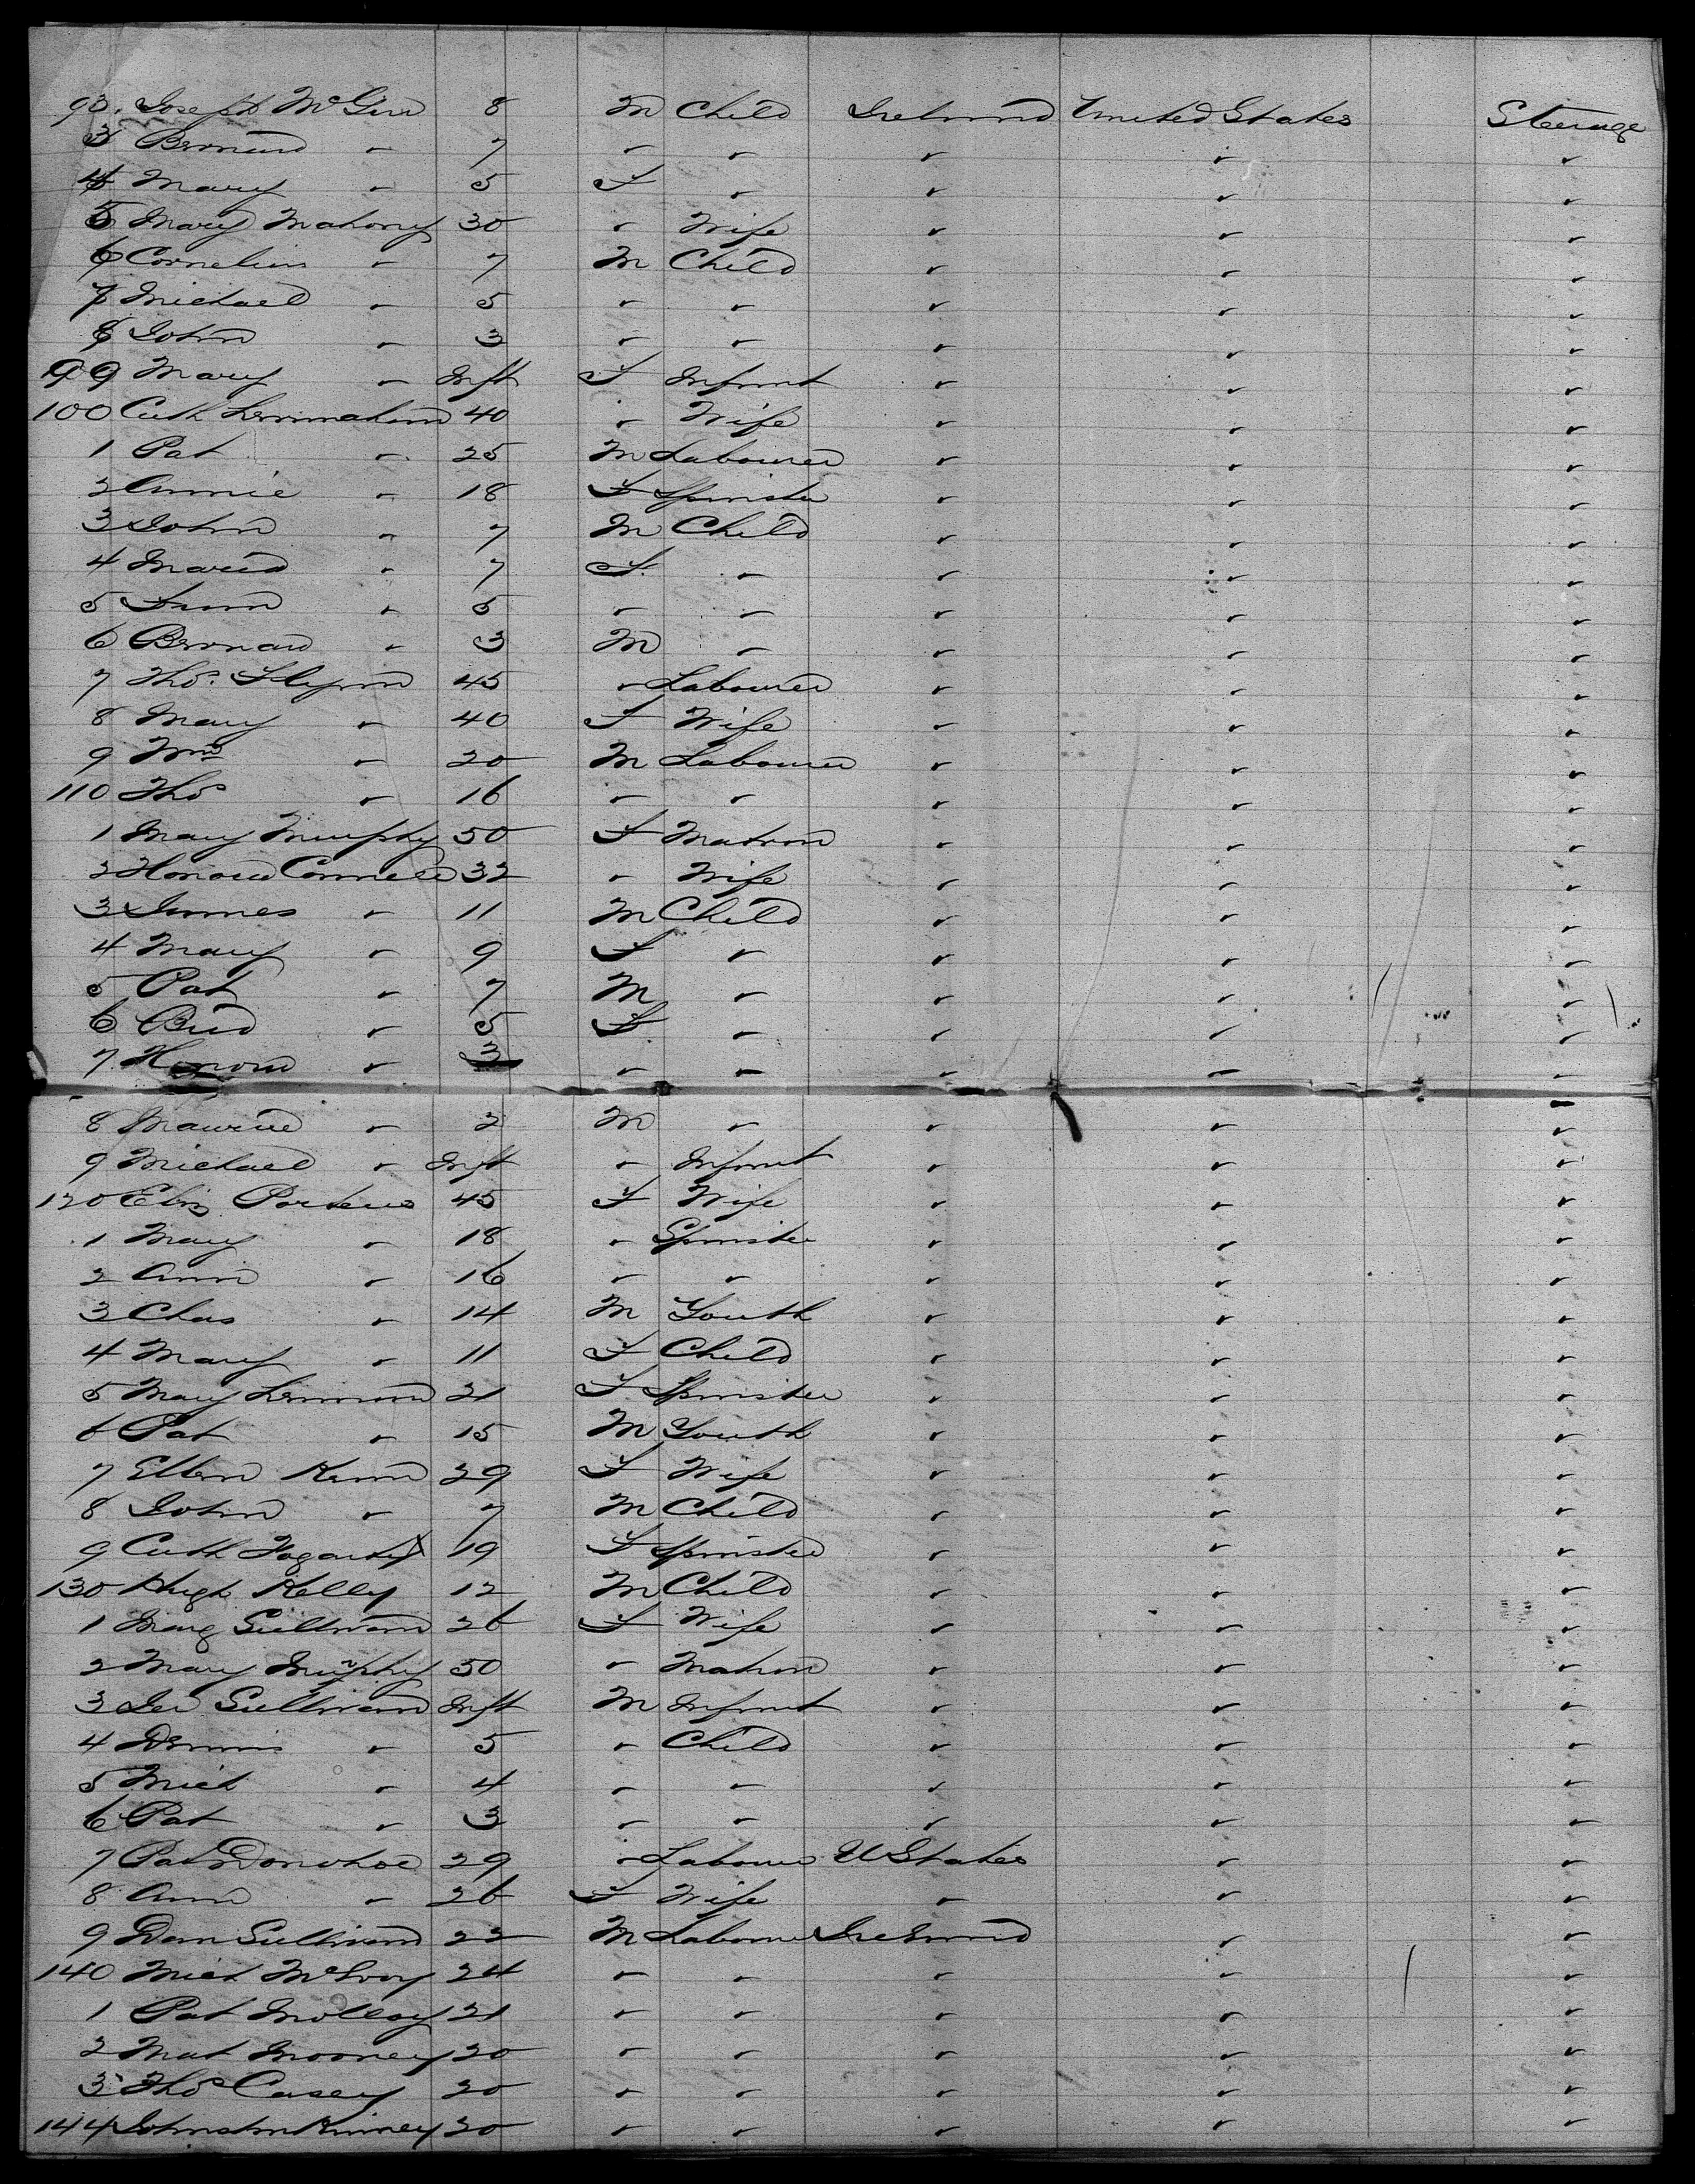 93. Joseph McGinn 8 M Child Ireland United States Steerage
3 Bernard " 7 " " " " "
4 Mary " 5 F " " " "
5 Mary Mahony 30 " Wife " " "
6 Cornelius " 7 M Child " " "
7 Michael " 5 " " " " "
8 John " 3 " " " " "
99 Mary " Inft F Infant " " "
100 Cath 40 " Wife " " "
1 Pat " 25 M Labourer " " "
2 Annie " 18 F Spinster " " "
3 John " 7 M Child " " "
4 Maria " 7 F " " " "
5 " 5 " " " " "
6 Bernard " 3 M " " " "
7 Thos. Flynn 45 " Labourer " " "
8 Mary " 40 F Wife " " "
9 Wm " 20 M Labourer " " "
110 Thos " 16 " " " " "
1 Mary Murphy 50 F Matron " " "
2 Honora Connell 32 " Wife " " "
3 James " 11 M Child " " "
4 Mary " 9 F " " " "
5 Pat " 7 M " " " "
6 Brid " 5 F " " " "
7 Honora " 3 " " " " "
8 Maurice " 2 M " " " "
9 Michael " Inft " Infant " " "
120 Eliz Porteus 45 F Wife " " "
1 Mary " 18 " Spinster " " "
2 Ann " 16 " " " " "
3 Chas " 14 M Youth " " "
4 Mary " 11 F Child " " "
5 Mary Lennon 21 F Spinster " " "
6 Pat " 15 M Youth " " "
7 Ellen 29 F Wife " " "
8 John " 7 M Child " " "
9 Cath Fogarty 19 F Spinster " " "
130 Hugh Kelly 12 M Child " " "
1 Marg Sullivan 26 F Wife " " "
2 Mary Murphy 50 " Matron " " "
3 Sullivan Inft M Infant " " "
4 Dennis " 5 " Child " " "
5 Mich " 4 " " " " "
6 Pat " 3 " " " " "
7 Pat Donohoe 29 " Labourer U States " "
8 Ann " 26 F Wife " " "
9 Dan Sullivan 22 M Labourer Ireland " "
140 Mich McEvoy 24 " " " " "
1 Pat Molloy 21 " " " " "
2 Mat Mooney 20 " " " " "
3 Thos Casey 20 " " " " "
144 Johnston Kinney 20 " " " " "